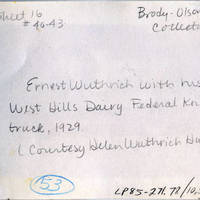 Sheet 16
# 40-43
Brody-Olson
Collect
Ernest Wuthrich with his
West Hills Dairy Federal Kn
truck, 1929.
(Courtesy Helen Wuthrich Hu
53
LP85-271.78/10,